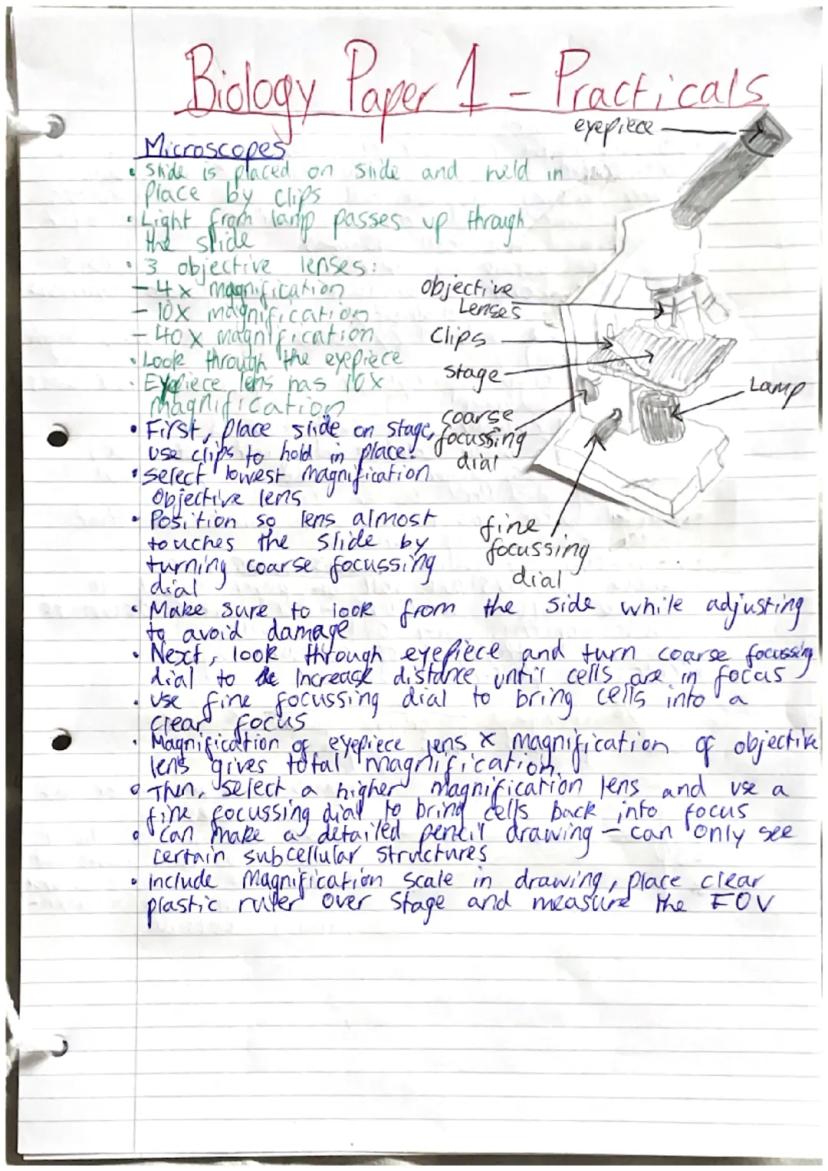 Biology Paper 1 - Practicals
eyepiece
Microscopes
• Slide is placed on slide and held in
place by clips
• Light from lamp passes up through
the slide
• 3 objective lenses:
- 4x magnification
- 10x magnification
- 40x magnification
• Look through the eyepiece
• Eyepiece lens has 10x
magnification
objective
Lenses
Clips
stage
Lamp
coarse
focussing
dial
fine
focussing
dial
• First, place slide on stage,
use clips to hold in place.
• Select lowest magnification
objective lens
• Position so lens almost
touches the slide by
turning coarse focussing
dial
• Make sure to look from the side while adjusting
to avoid damage
• Next, look through eyepiece and turn coarse focussing
dial to increase distance until cells are in focus
• Use fine focussing dial to bring cells into a
clear focus
• Magnification of eyepiece lens x magnification of objective
lens gives total magnification.
• Then, select a higher magnification lens and use a
fine focussing dial to bring cells back into focus
• Can make a detailed pencil drawing - can only see
certain subcellular structures
• Include magnification scale in drawing, place clear
plastic ruler over stage and measure the FOV